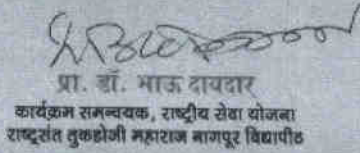 प्रा. डॉ. भाऊ दायदार
कार्यक्रम समन्वयक, राष्ट्रीय सेवा योजना
राष्ट्रसंत तुकडोजी महाराज नागपूर विद्यापीठ